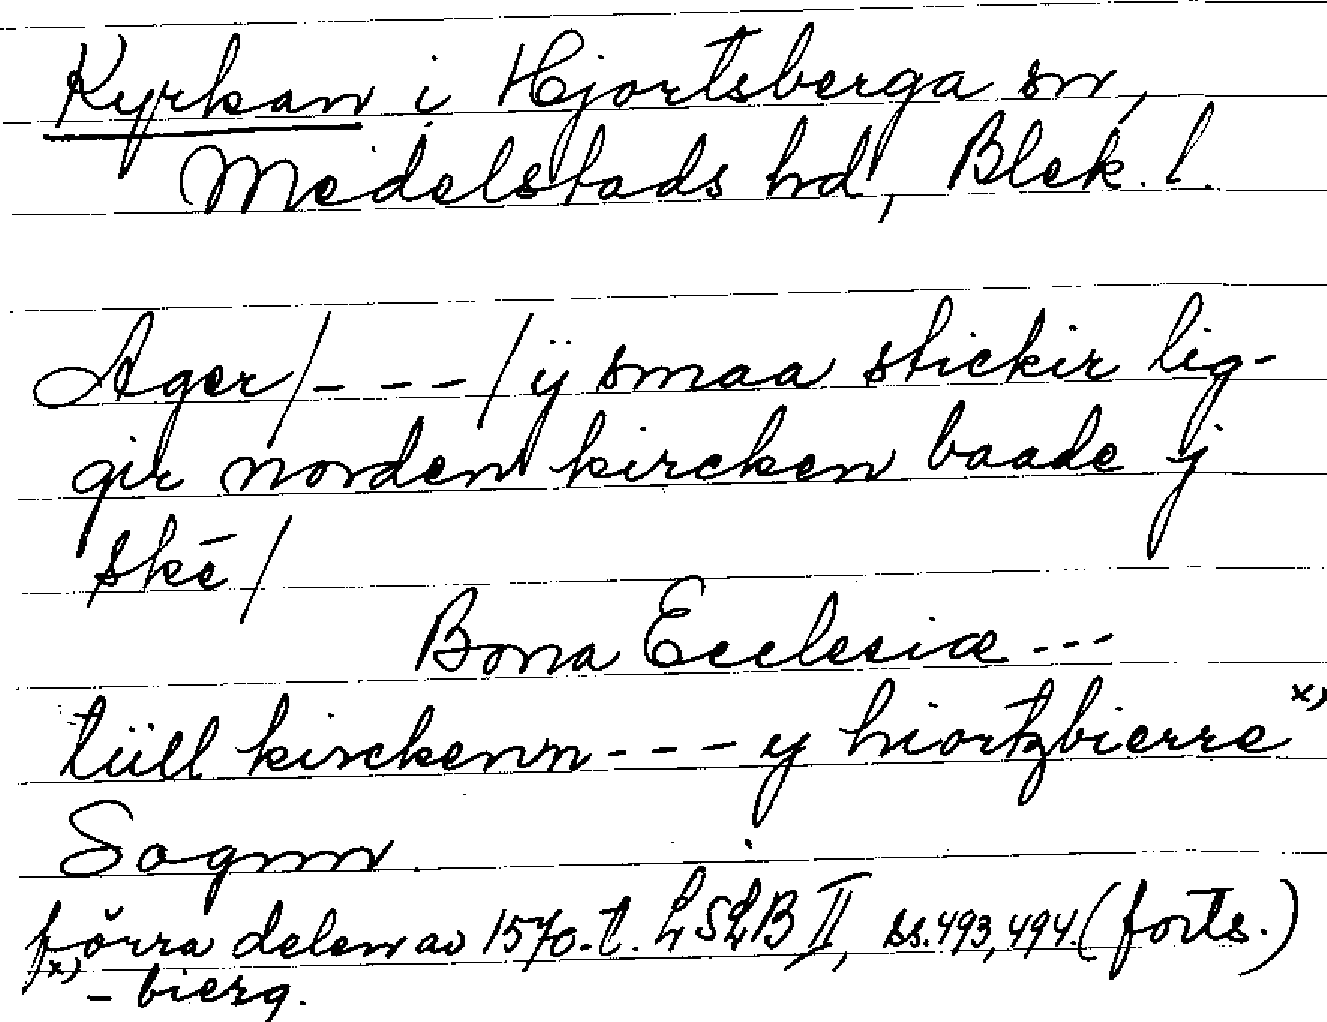 Kyrkan i Hjortsberga sn,
Medelstads hd, Blek. l.
Ager /- - - / ÿ smaa stickir lig-
gir norden kircken baade j
skē /
Bona Ecclesiæ ---
tüll kirckenn --- y hiortzbierre x)
Sognn
förra delen av 1570-t. LSLB II, ss. 493, 494. (forts.)
x) - bierg.